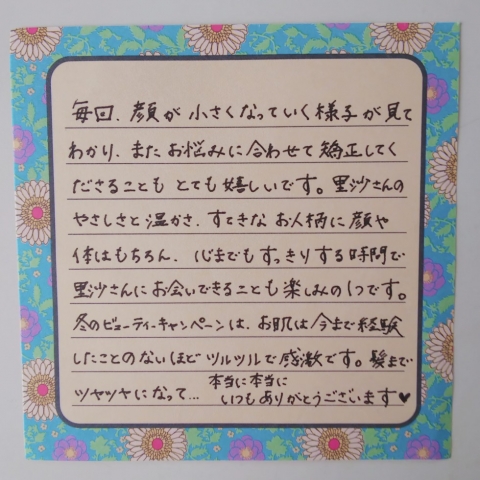 毎回、顔が小さくなっていく様子が見て
わかり、またお悩みに合わせて矯正してく
ださることもとても嬉しいです。里沙さんの
やさしさと温かさ、すてきなお人柄に顔や
体はもちろん、心までもすっきりする時間で
里沙さんにお会いできることも楽しみの1つです。
冬のビューティーキャンペーンは、お肌は今まで経験
したことのないほどツルツルで感激です。髪まで
ツヤツヤになって… 本当に本当に
いつもありがとうございます♥